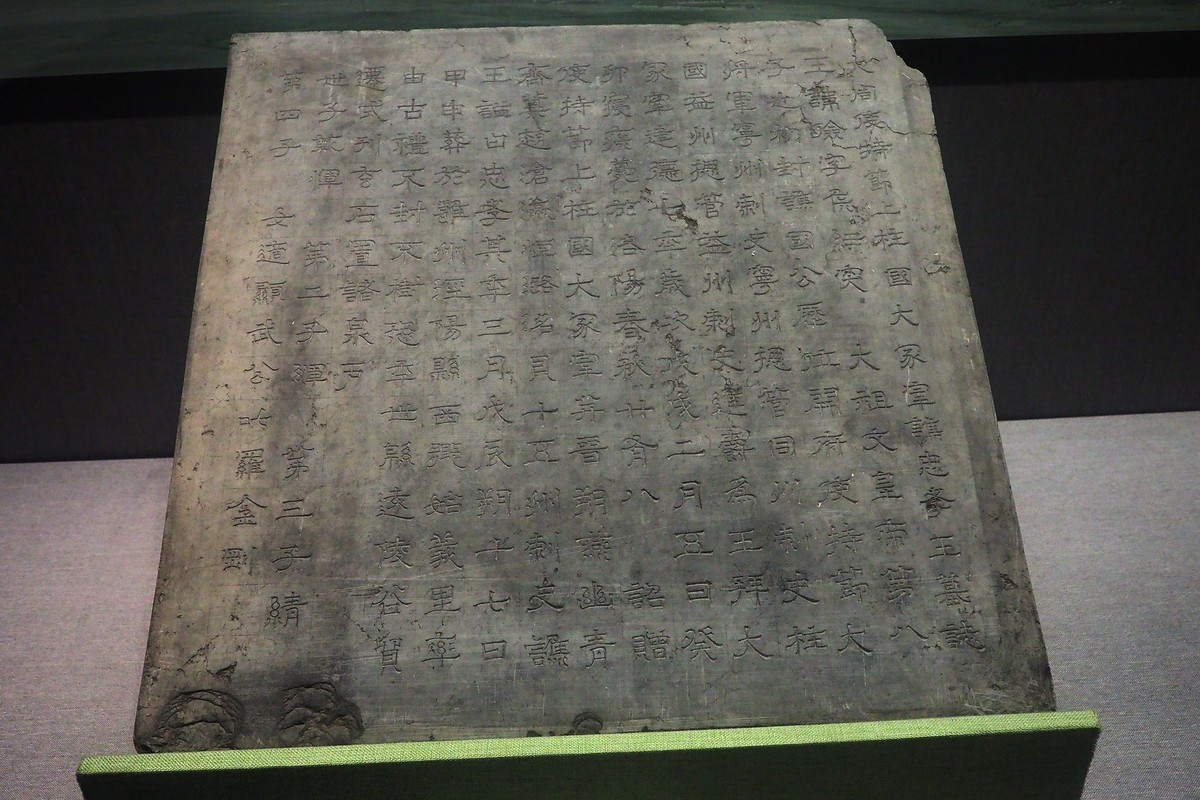 大周使持節上柱國大冢宰譙忠孝王墓誌
王諱儉字侯紐突 太祖文皇帝第八
子也初封譙國公歷位開府使持節大
將軍寧州刺史寧州捴管同州刺史柱
國益州捴管益州刺史進爵為王拜大
冢宰建德七年歲次戊戌二月五日癸
卯寢疾薨於洛陽春秋廿有八 詔贈
使持節上柱國大冢宰并晉朔燕幽青
齊冀趙滄瀛恒潞洺貝十五州刺史譙
王謚曰忠孝其年三月戊辰朔十七日
甲申葬於雍州涇陽縣西鄉始義里率
由古禮不封不樹恐年世綿遠陵谷貿
遷式刊玄石置諸泉戶
世子乾惲 第二子 第三子綪
第四子 女適顯武公叱羅金剛